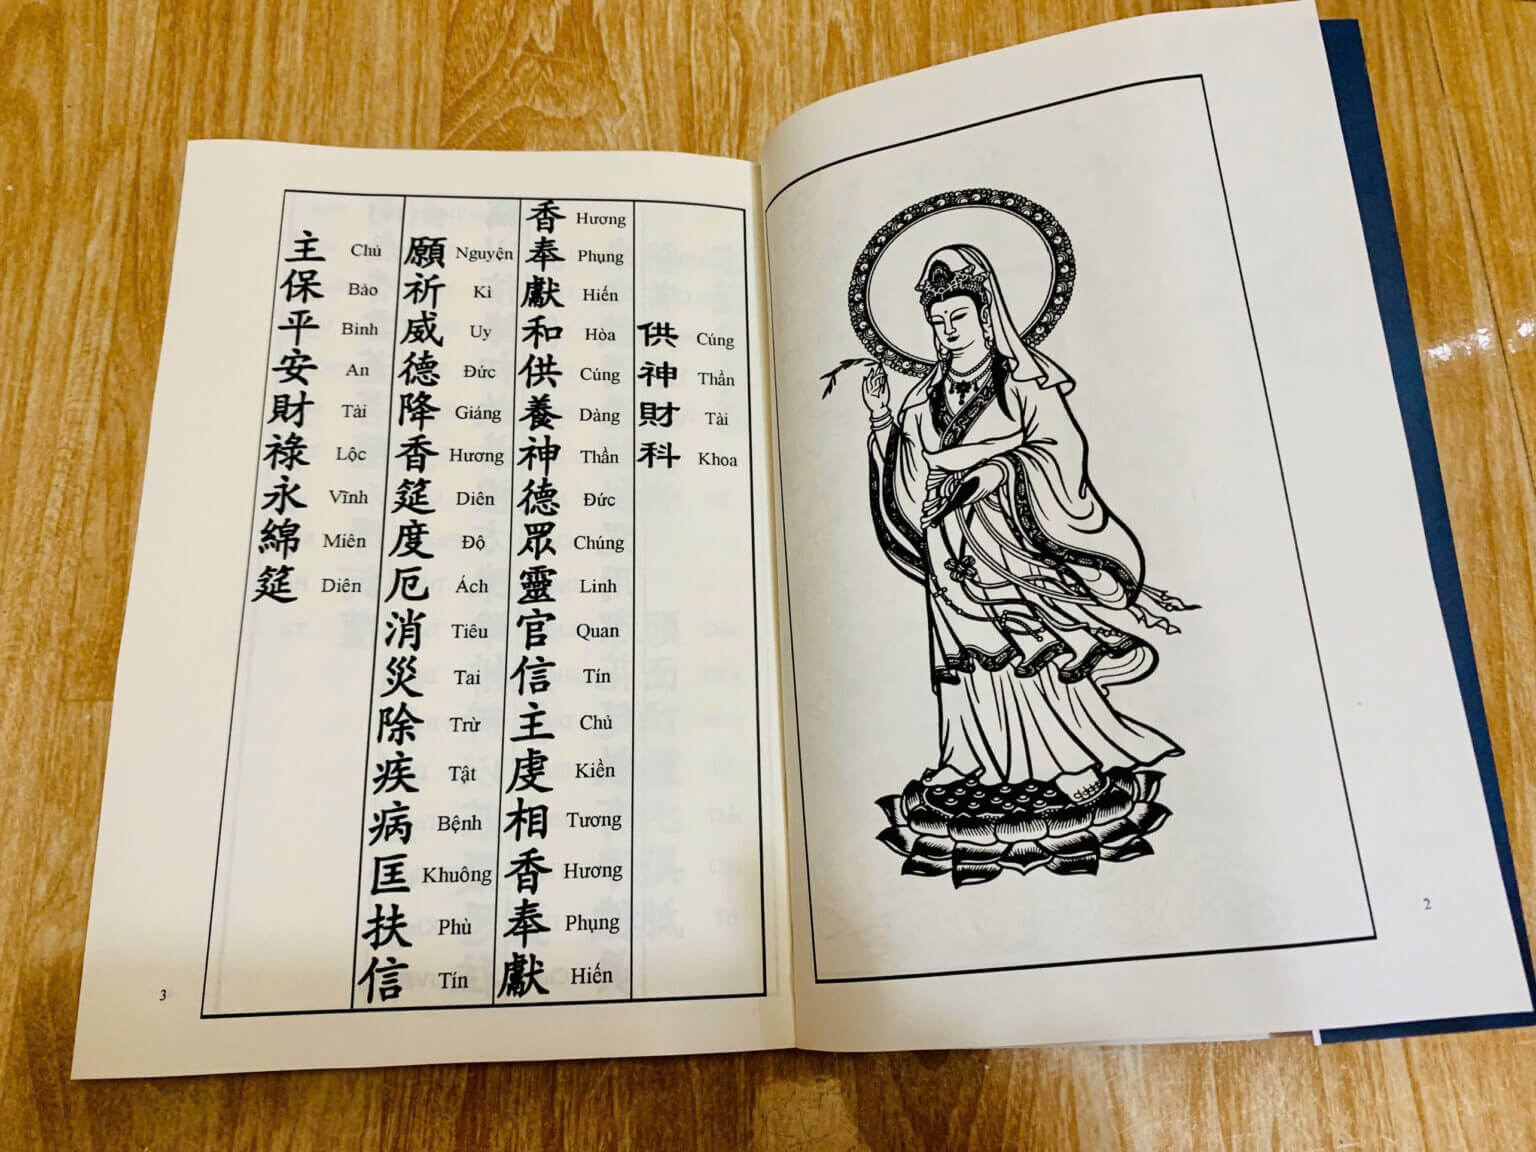 供神財科
Cúng Thần Tài Khoa
香奉獻和供養神德眾靈官信主虔相香奉獻
Hương Phụng Hiến Hòa Cúng Dàng Thần Đức Chúng Linh Quan Tín Chủ Kiền Tương Hương Phụng Hiến
願祈威德降香筵度厄消災除疾病匡扶信
Nguyện Kì Uy Đức Giáng Hương Diên Độ Ách Tiêu Tai Trừ Tật Bệnh Khuông Phù Tín
主保平安財祿永綿筵
Chủ Bảo Bình An Tài Lộc Vĩnh Miên Diên
2
3